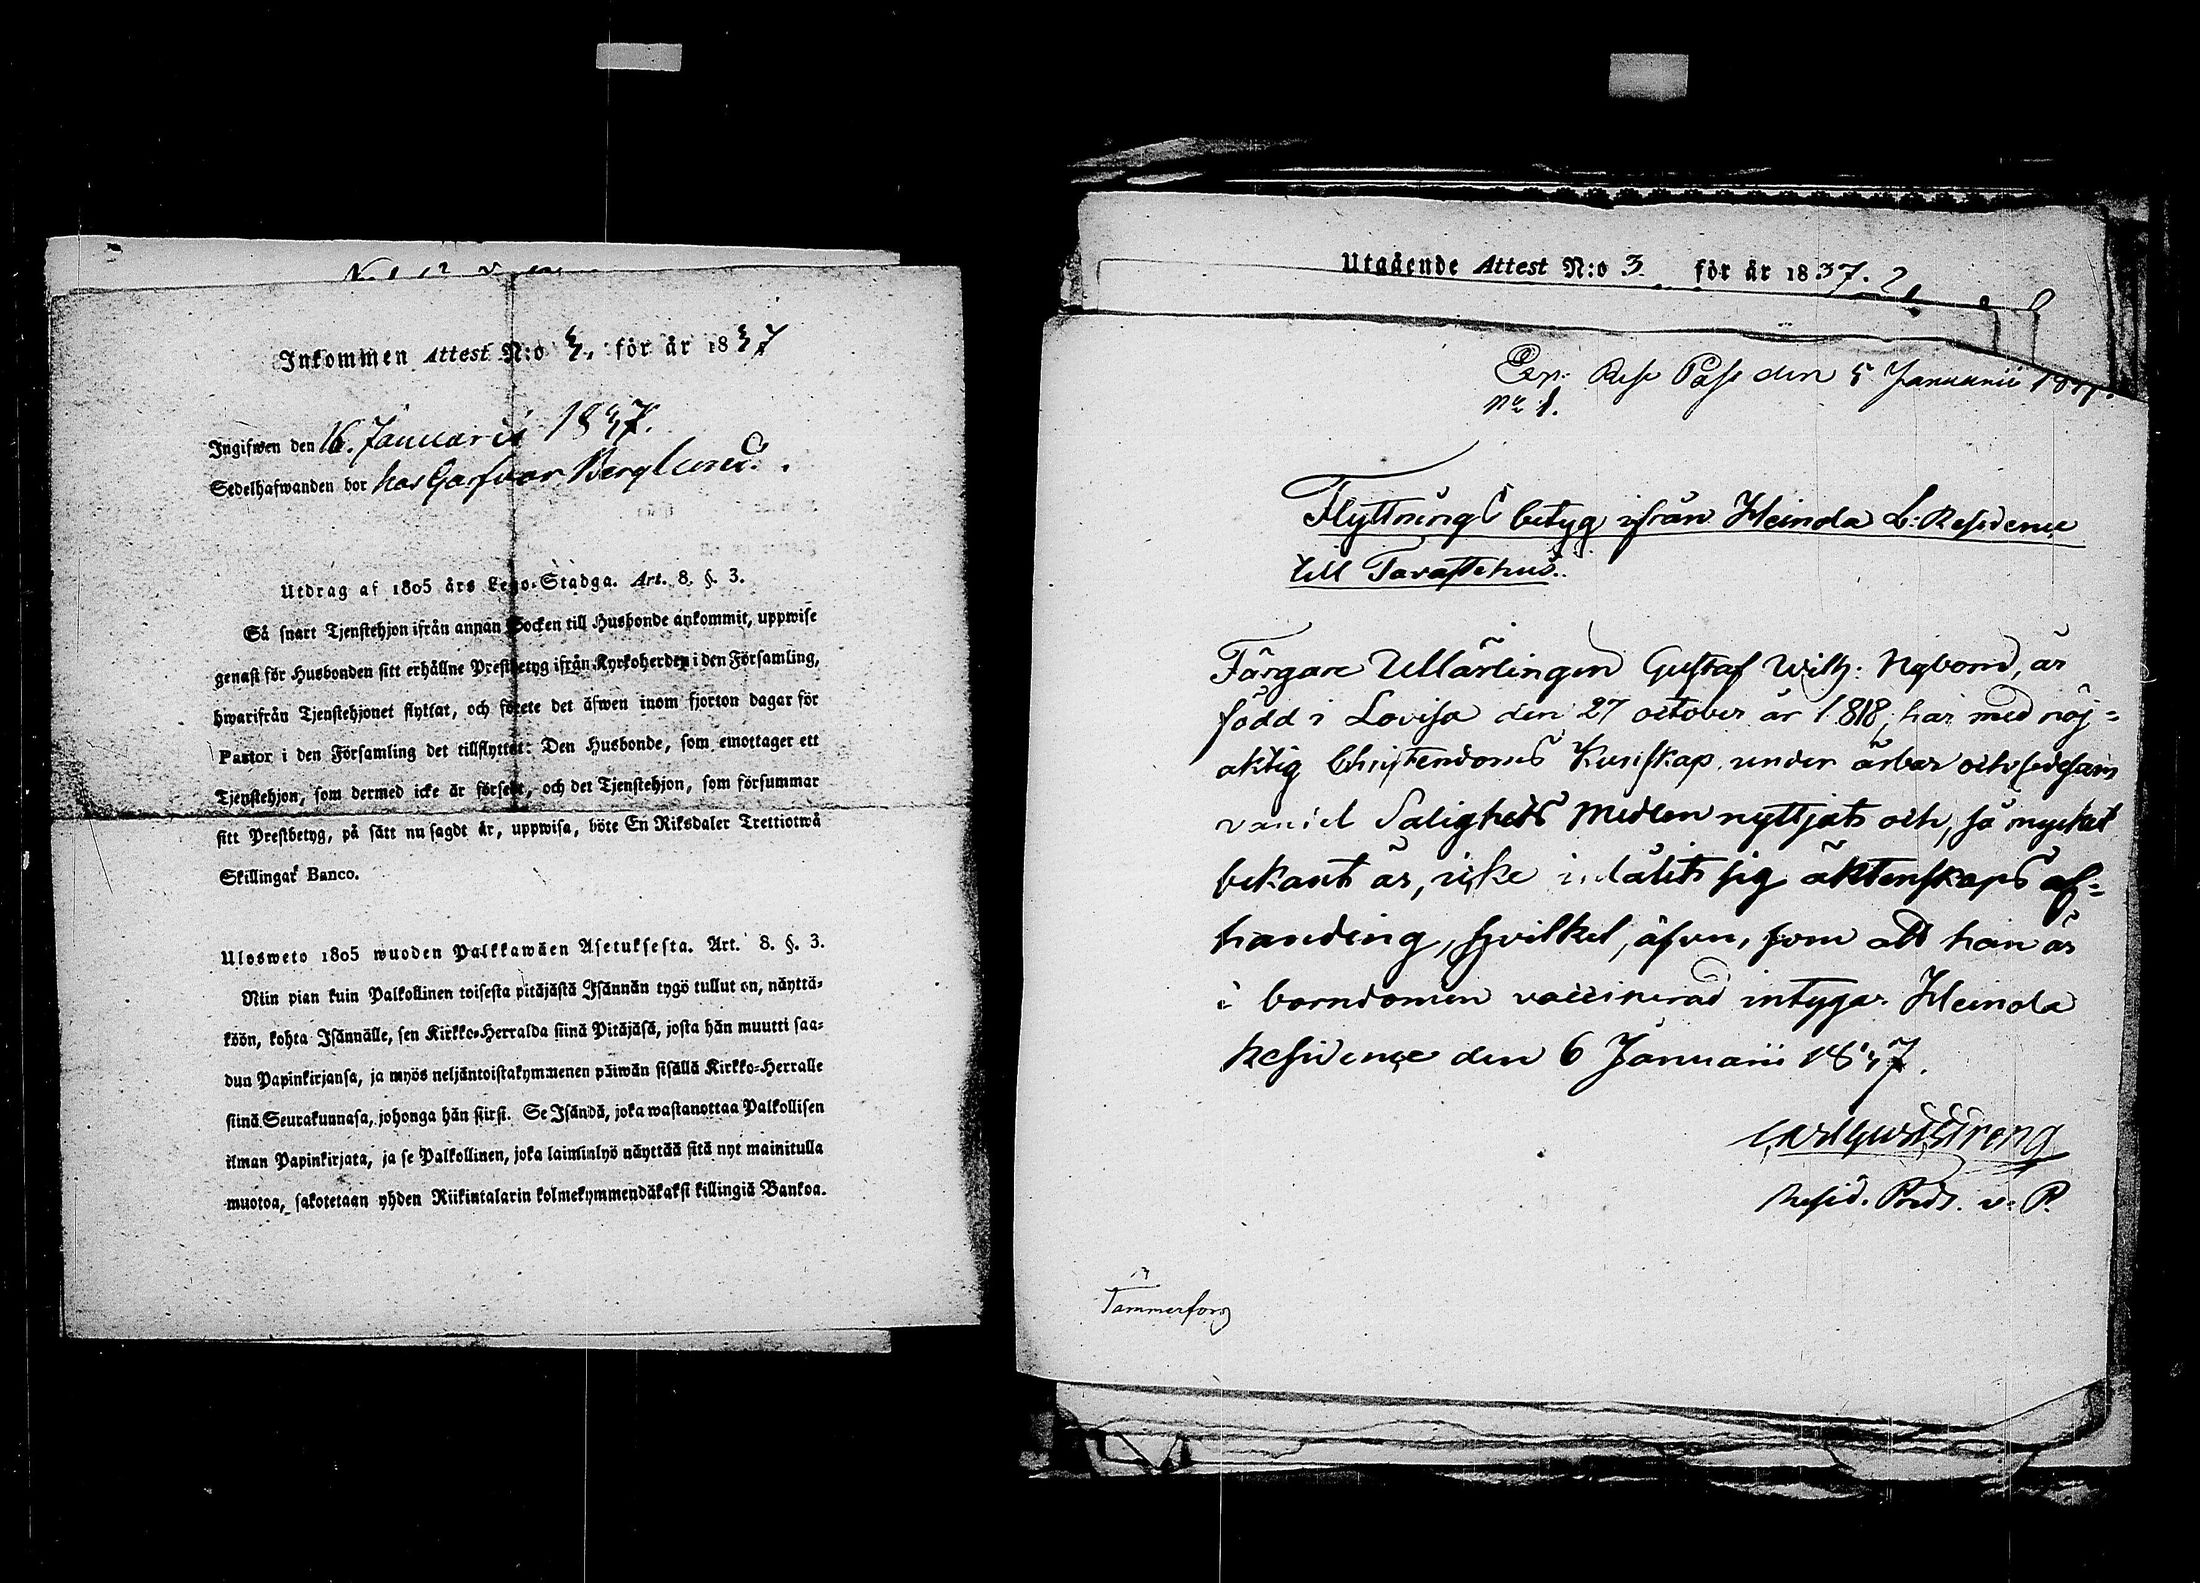 Inkommen Attest N:o 3. för år 1837
Ingifwen den 16. Januarii 1837.
Sedelhafwanden bor hos Garfvar Berglund.
Utdrag af 1805 års Lego-Stadga. Art. 8. §. 3.
Så snart Tjenstehjon ifrån annan Socken till Husbonde ankommit, uppwise
genast för Husbonden sitt erhållne Prestbetyg ifrån Kyrkoherden i den Församling,
hwarifrån Tjenstehjonet flyttat, och förete det äfwen inom fjorton dagar för
Pastor i den Församling det tillflyttat: Den Husbonde, som emottager ett
Tjenstehjon, som dermed icke är försedt, och det Tjenstehjon, som försummar
sitt Prestbetyg, på sätt nu sagdt är, uppwisa, böte En Riksdaler Trettiotwå
Skillingar Banco.
Ulosweto 1805 wuoden Palkkawäen Asetuksesta. Art. 8. §. 3.
Niin pian kuin Palkollinen toisesta pitäjästä Isännän tygö tullut on, näyttä-
köön, kohta Isännälle, sen Kirkko-Herralda siinä Pitäjäsä, josta hän muutti saa-
dun Papinkirjansa, ja myös neljäntoistakymmenen päiwän sisällä Kirkko-Herralle
siinä Seurakunnasa, johonga hän siirsi. Se Isändä, joka wastanottaa Palkollisen
ilman Papinkirjata, ja se Palkollinen, joka laiminlyö näyttää sitä nyt mainitulla
muotoa, sakotetaan yhden Riikintalarin kolmekymmendäkaksi killingiä Bankoa.
Utgående Attest N:o 3 för år 1837.
Exp. Rese Pass den 5 Januarii 1837.
No 1.
Flyttnings betyg ifrån Heinola L: Residence
till Tavastehus.
Färgare Ullärlingen Gustaf Wilh: Nybond, är
född i Lovisa den 27 october år 1818, har med nöj=
aktig Christendoms Kunskap under ärbar och sedesam
vandel Salighets Medlen nyttjat och, så mycket
bekant är, icke inlåtit sig äktenskaps af=
handling, hvilket, äfven, som att han är
i barndomen vaccinerad intygar. Heinola
Residence den 6 Januarii 1837.
Resid. Pred. v. P.
Tammerfors